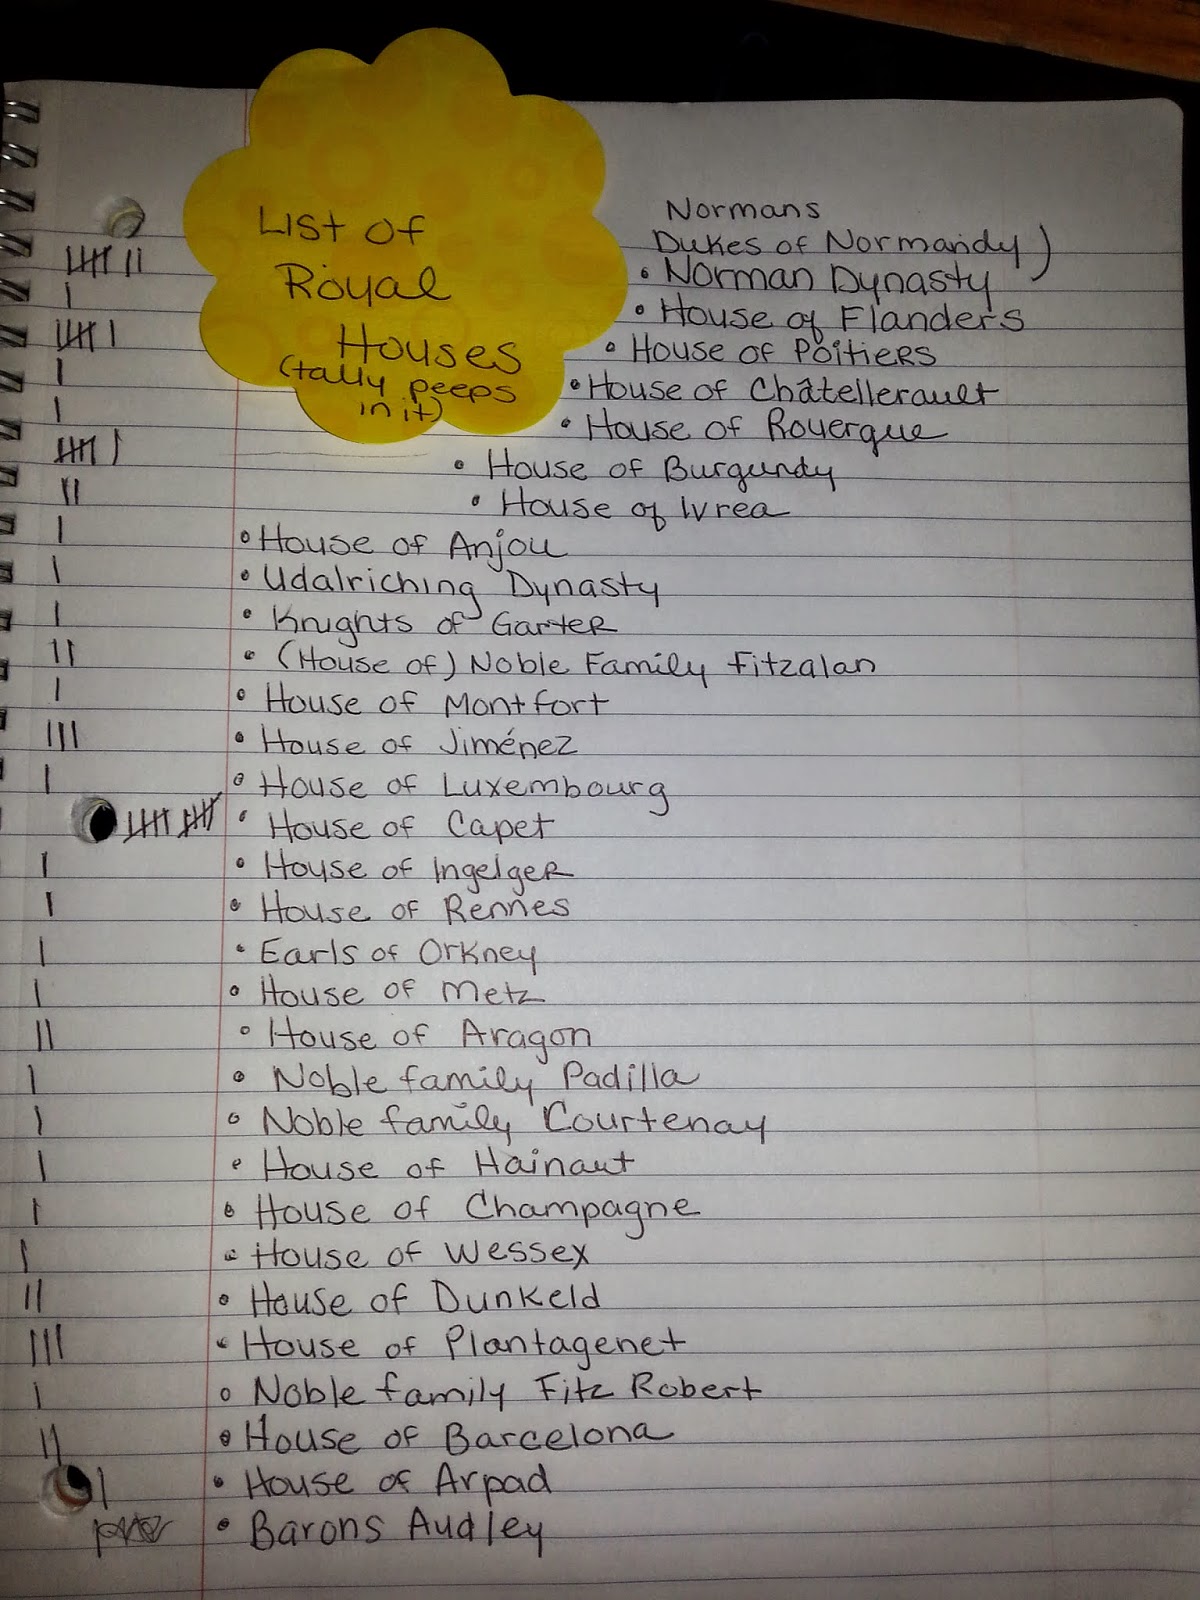 List of
Royal
Houses
(tally peeps
in it)
Normans
Dukes of Normandy)
• Norman Dynasty
• House of Flanders
• House of Poitiers
• House of Châtellerault
• House of Rouergue
• House of Burgundy
• House of Ivrea
• House of Anjou
• Udalriching Dynasty
• Knights of Garter
• (House of) Noble Family Fitzalan
• House of Montfort
• House of Jiménez
• House of Luxembourg
• House of Capet
• House of Ingelger
• House of Rennes
• Earls of Orkney
• House of Metz
• House of Aragon
• Noble family Padilla
• Noble family Courtenay
• House of Hainaut
• House of Champagne
• House of Wessex
• House of Dunkeld
• House of Plantagenet
• Noble family Fitz Robert
• House of Barcelona
• House of Arpad
• Barons Audley